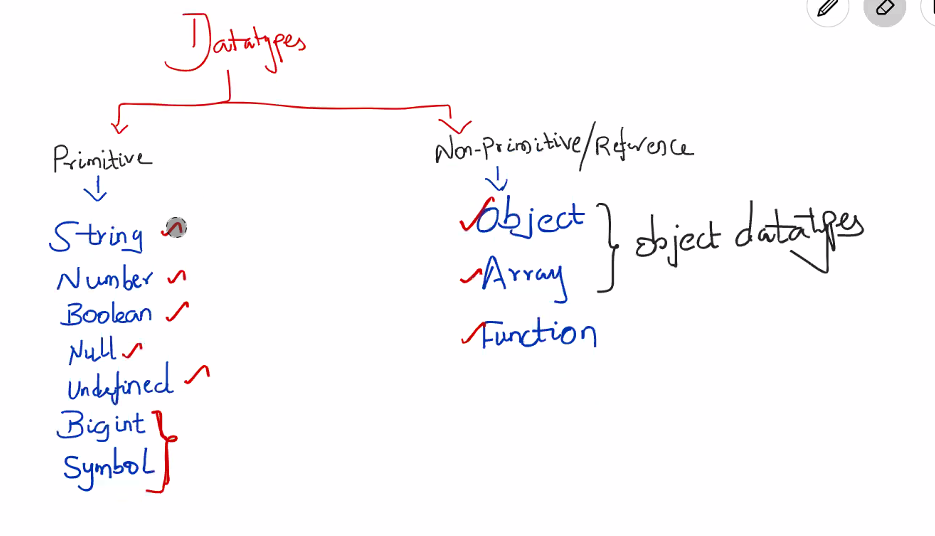 Datatypes
Primitive
String
Number
Boolean
Null
Undefined
Bigint
Symbol
Non-Primitive/Reference
Object
Array
Function
object datatypes